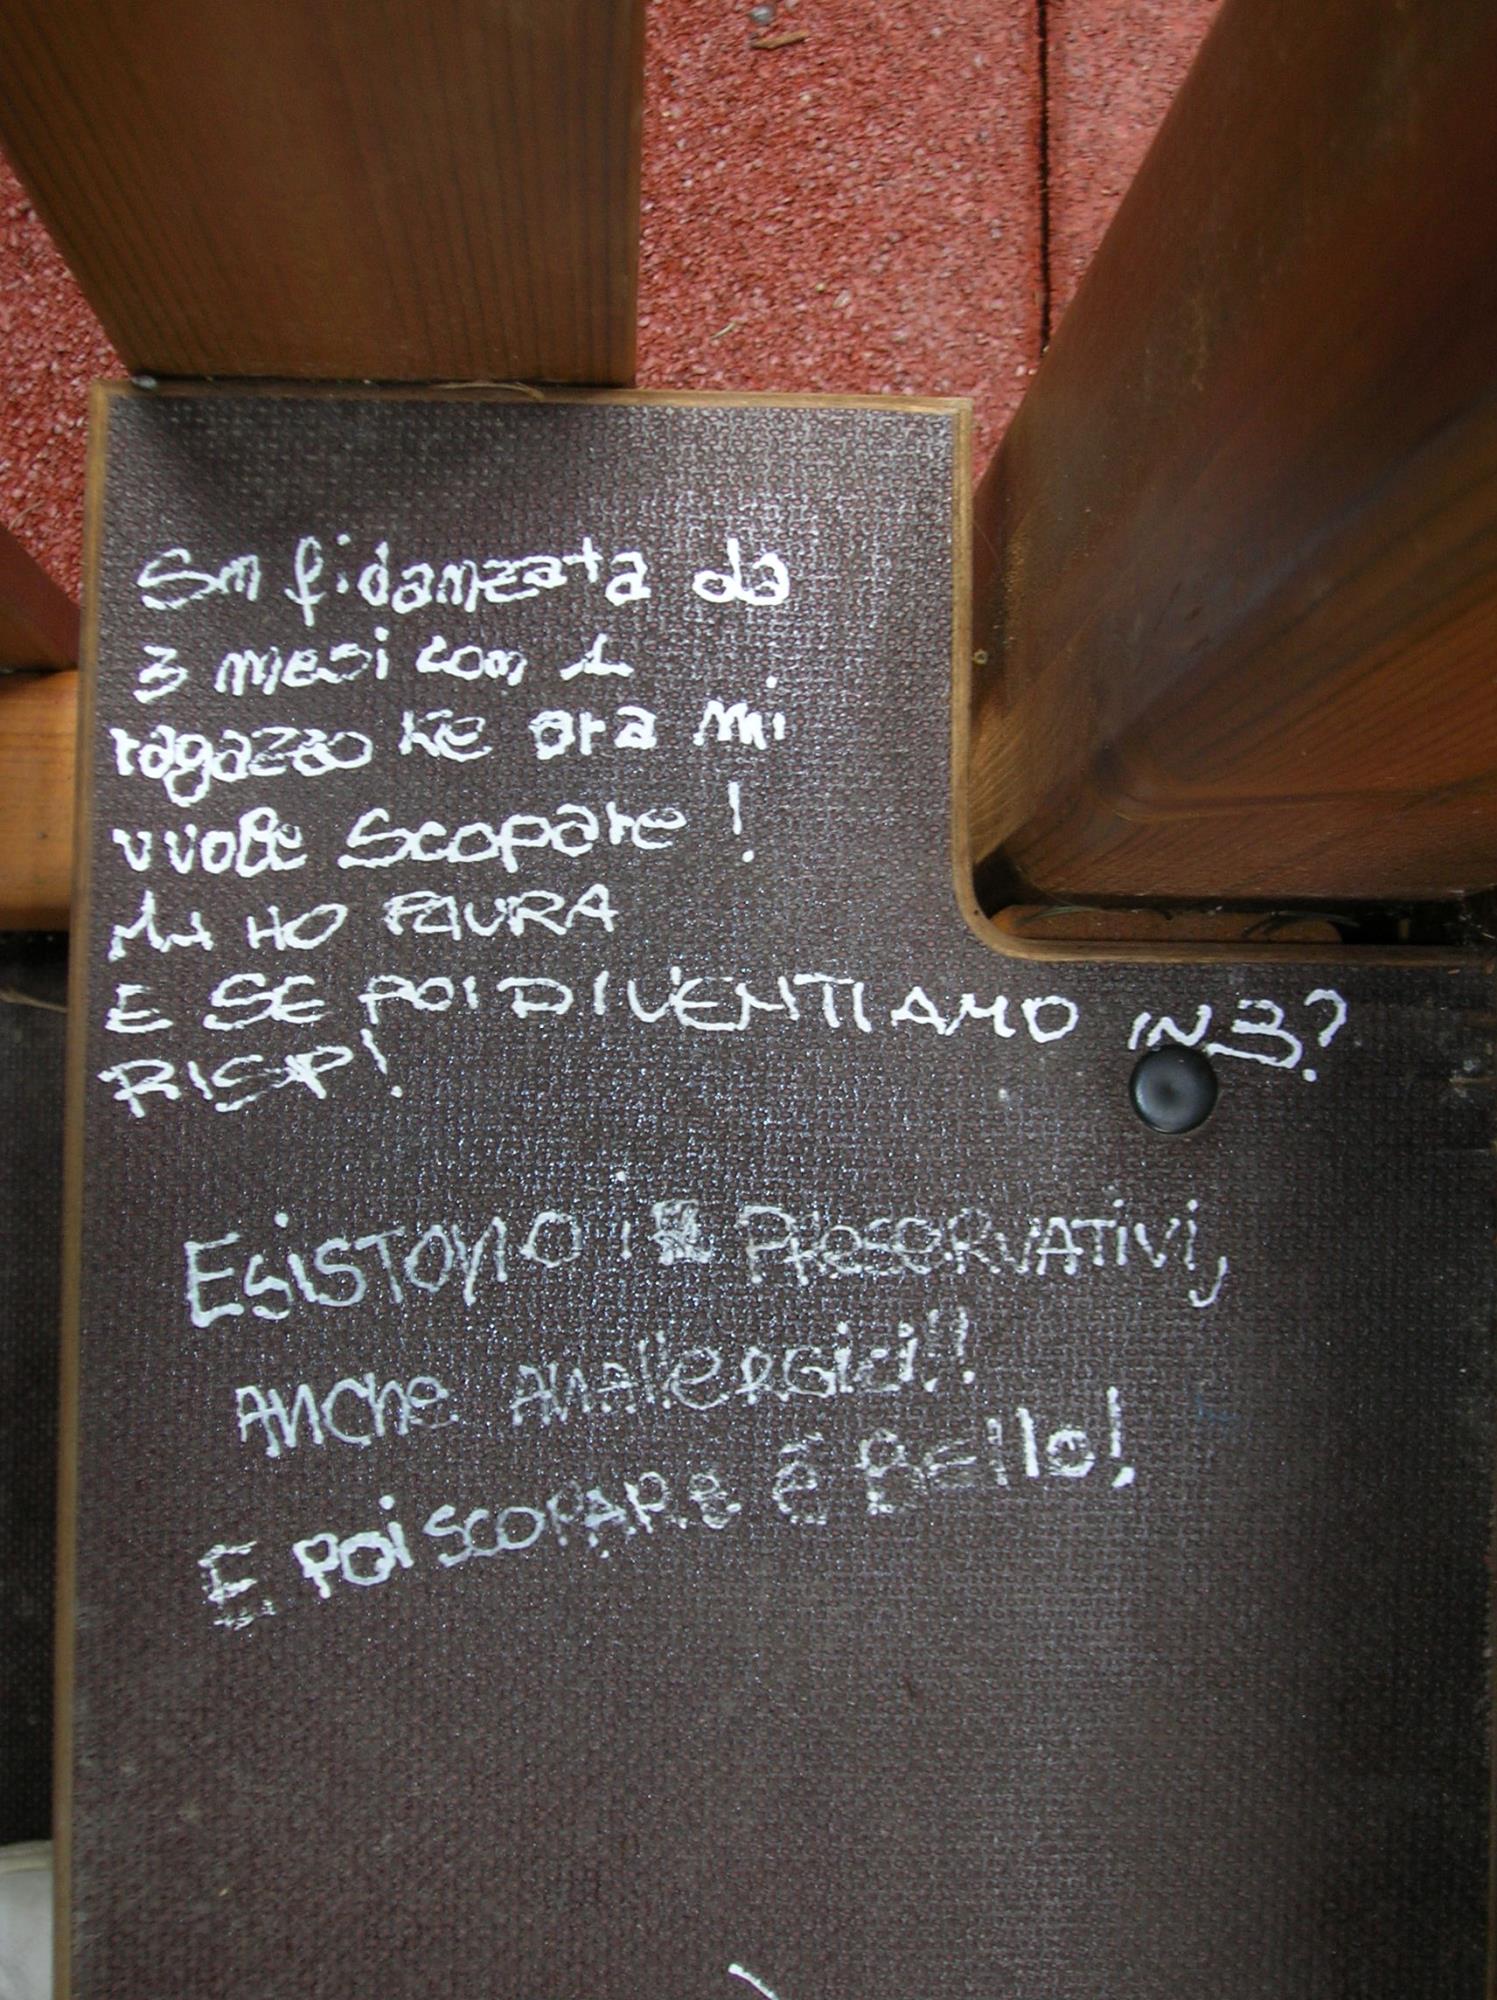 Sm fidanzata da
3 mesi con 1
ragazzo ke ora mi
vuole scopare!
MA HO PAURA
E SE POI DIVENTIAMO IN 3?
RISP!
ESISTONO i PRESERVATIVI,
ANChe ANAllERGICI!!
E POI SCOPARE è Bello!